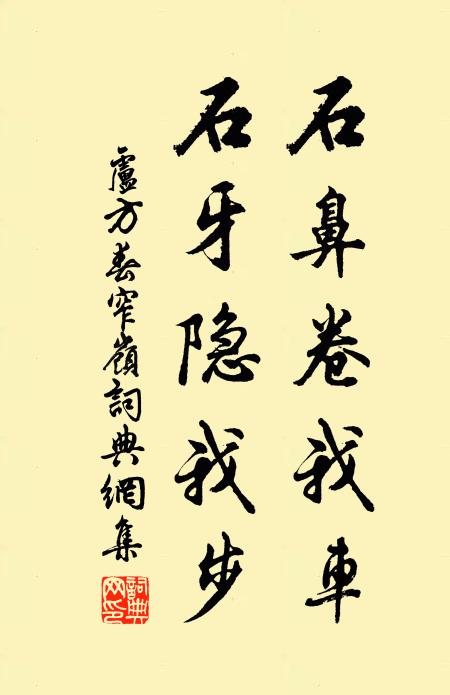 石鼻卷我車
石牙隐我步
盧方春窄嶺詞典網集
詞典